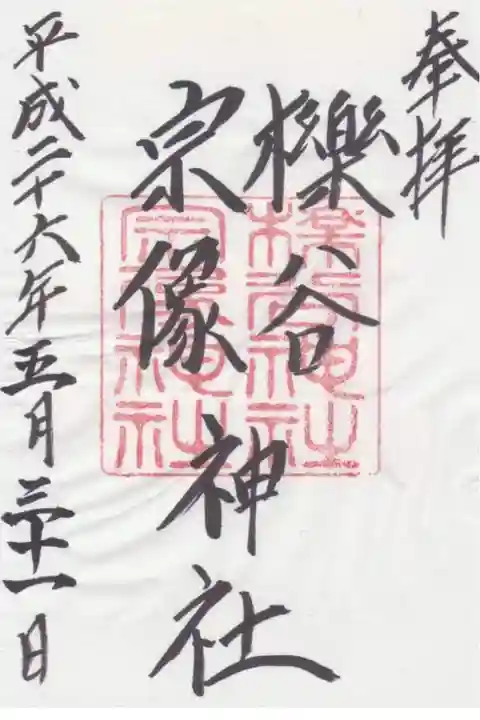 奉拝
櫟谷
宗像
神社
平成二十六年五月三十一日
櫟谷神社
宗像神社